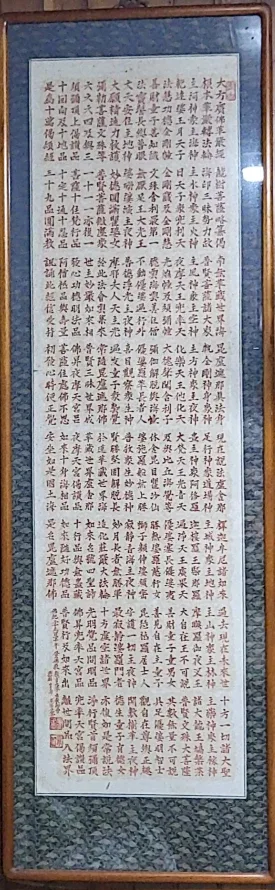 大方廣佛華嚴經 龍樹菩薩略纂偈 南無華藏世界海 毘盧遮那眞法身 現在說法盧舍那 釋迦牟尼諸如來 過去現在未來世 十方一切諸大聖
根本華嚴轉法輪 海印三昧勢力故 普賢菩薩諸大衆 執金剛神身衆神 足行神衆道場神 主城神衆主地神 主山神衆主林神 主藥神衆主稼神
主河神衆主海神 主水神衆主火神 主風神衆主空神 主方神衆主夜神 主晝神衆阿修羅 迦樓羅王緊那羅 摩睺羅伽夜叉王 諸大龍王鳩槃茶
乾闥婆王月天子 日天子衆忉利天 夜摩天王兜率天 化樂天王他化天 大梵天王光音天 遍淨天王廣果天 大自在王不可說 普賢文殊大菩薩
法慧功德金剛幢 金剛藏及金剛慧 光焰幢及須彌幢 大德聲聞舍利子 及與比丘海覺等 優婆塞長優婆夷 善財童子童男女 其數無量不可說
善財童子善知識 文殊舍利最第一 德雲海雲善住僧 彌伽解脫與海幢 休舍毘目瞿沙仙 勝熱婆羅慈行女 善見自在主童子 具足優婆明智士
法寶髻長與普眼 無厭足王大光王 不動優婆遍行外 優婆羅華長者人 婆施羅船無上勝 獅子嚬伸婆須密 毘瑟祗羅居士人 觀自在尊與正趣
大天安住主地神 婆珊婆演主夜神 普德淨光主夜神 喜目觀察衆生神 普救衆生妙德神 寂靜音海主夜神 守護一切主夜神 開敷樹華主夜神
大願精進力救護 妙德圓滿瞿婆女 摩耶夫人天主光 遍友童子衆藝覺 賢勝堅固解脫長 妙月長者無勝軍 最寂靜婆羅門者 德生童子有德女
彌勒菩薩文殊等 普賢菩薩微塵衆 於此法會雲集來 常隨毘盧遮那佛 於蓮華藏世界海 造化莊嚴大法輪 十方虛空諸世界 亦復如是常說法
六六六四及與三 一十一一亦復一 世主妙嚴如來相 普賢三昧世界成 華藏世界盧舍那 如來名號四聖諦 光明覺品問明品 淨行賢首須彌頂
須彌頂上偈讚品 菩薩十住梵行品 發心功德明法品 佛昇夜摩天宮品 夜摩天宮偈讚品 十行品與無盡藏 佛昇兜率天宮品 兜率天宮偈讚品
十回向及十地品 十定十通十忍品 阿僧祗品與壽量 菩薩住處佛不思 如來十身相海品 如來隨好功德品 普賢行及如來出 離世間品入法界
是爲十萬偈頌經 三十九品圓滿敎 諷誦此經信受持 初發心時便正覺 安坐如是國土海 是名毘盧遮那佛